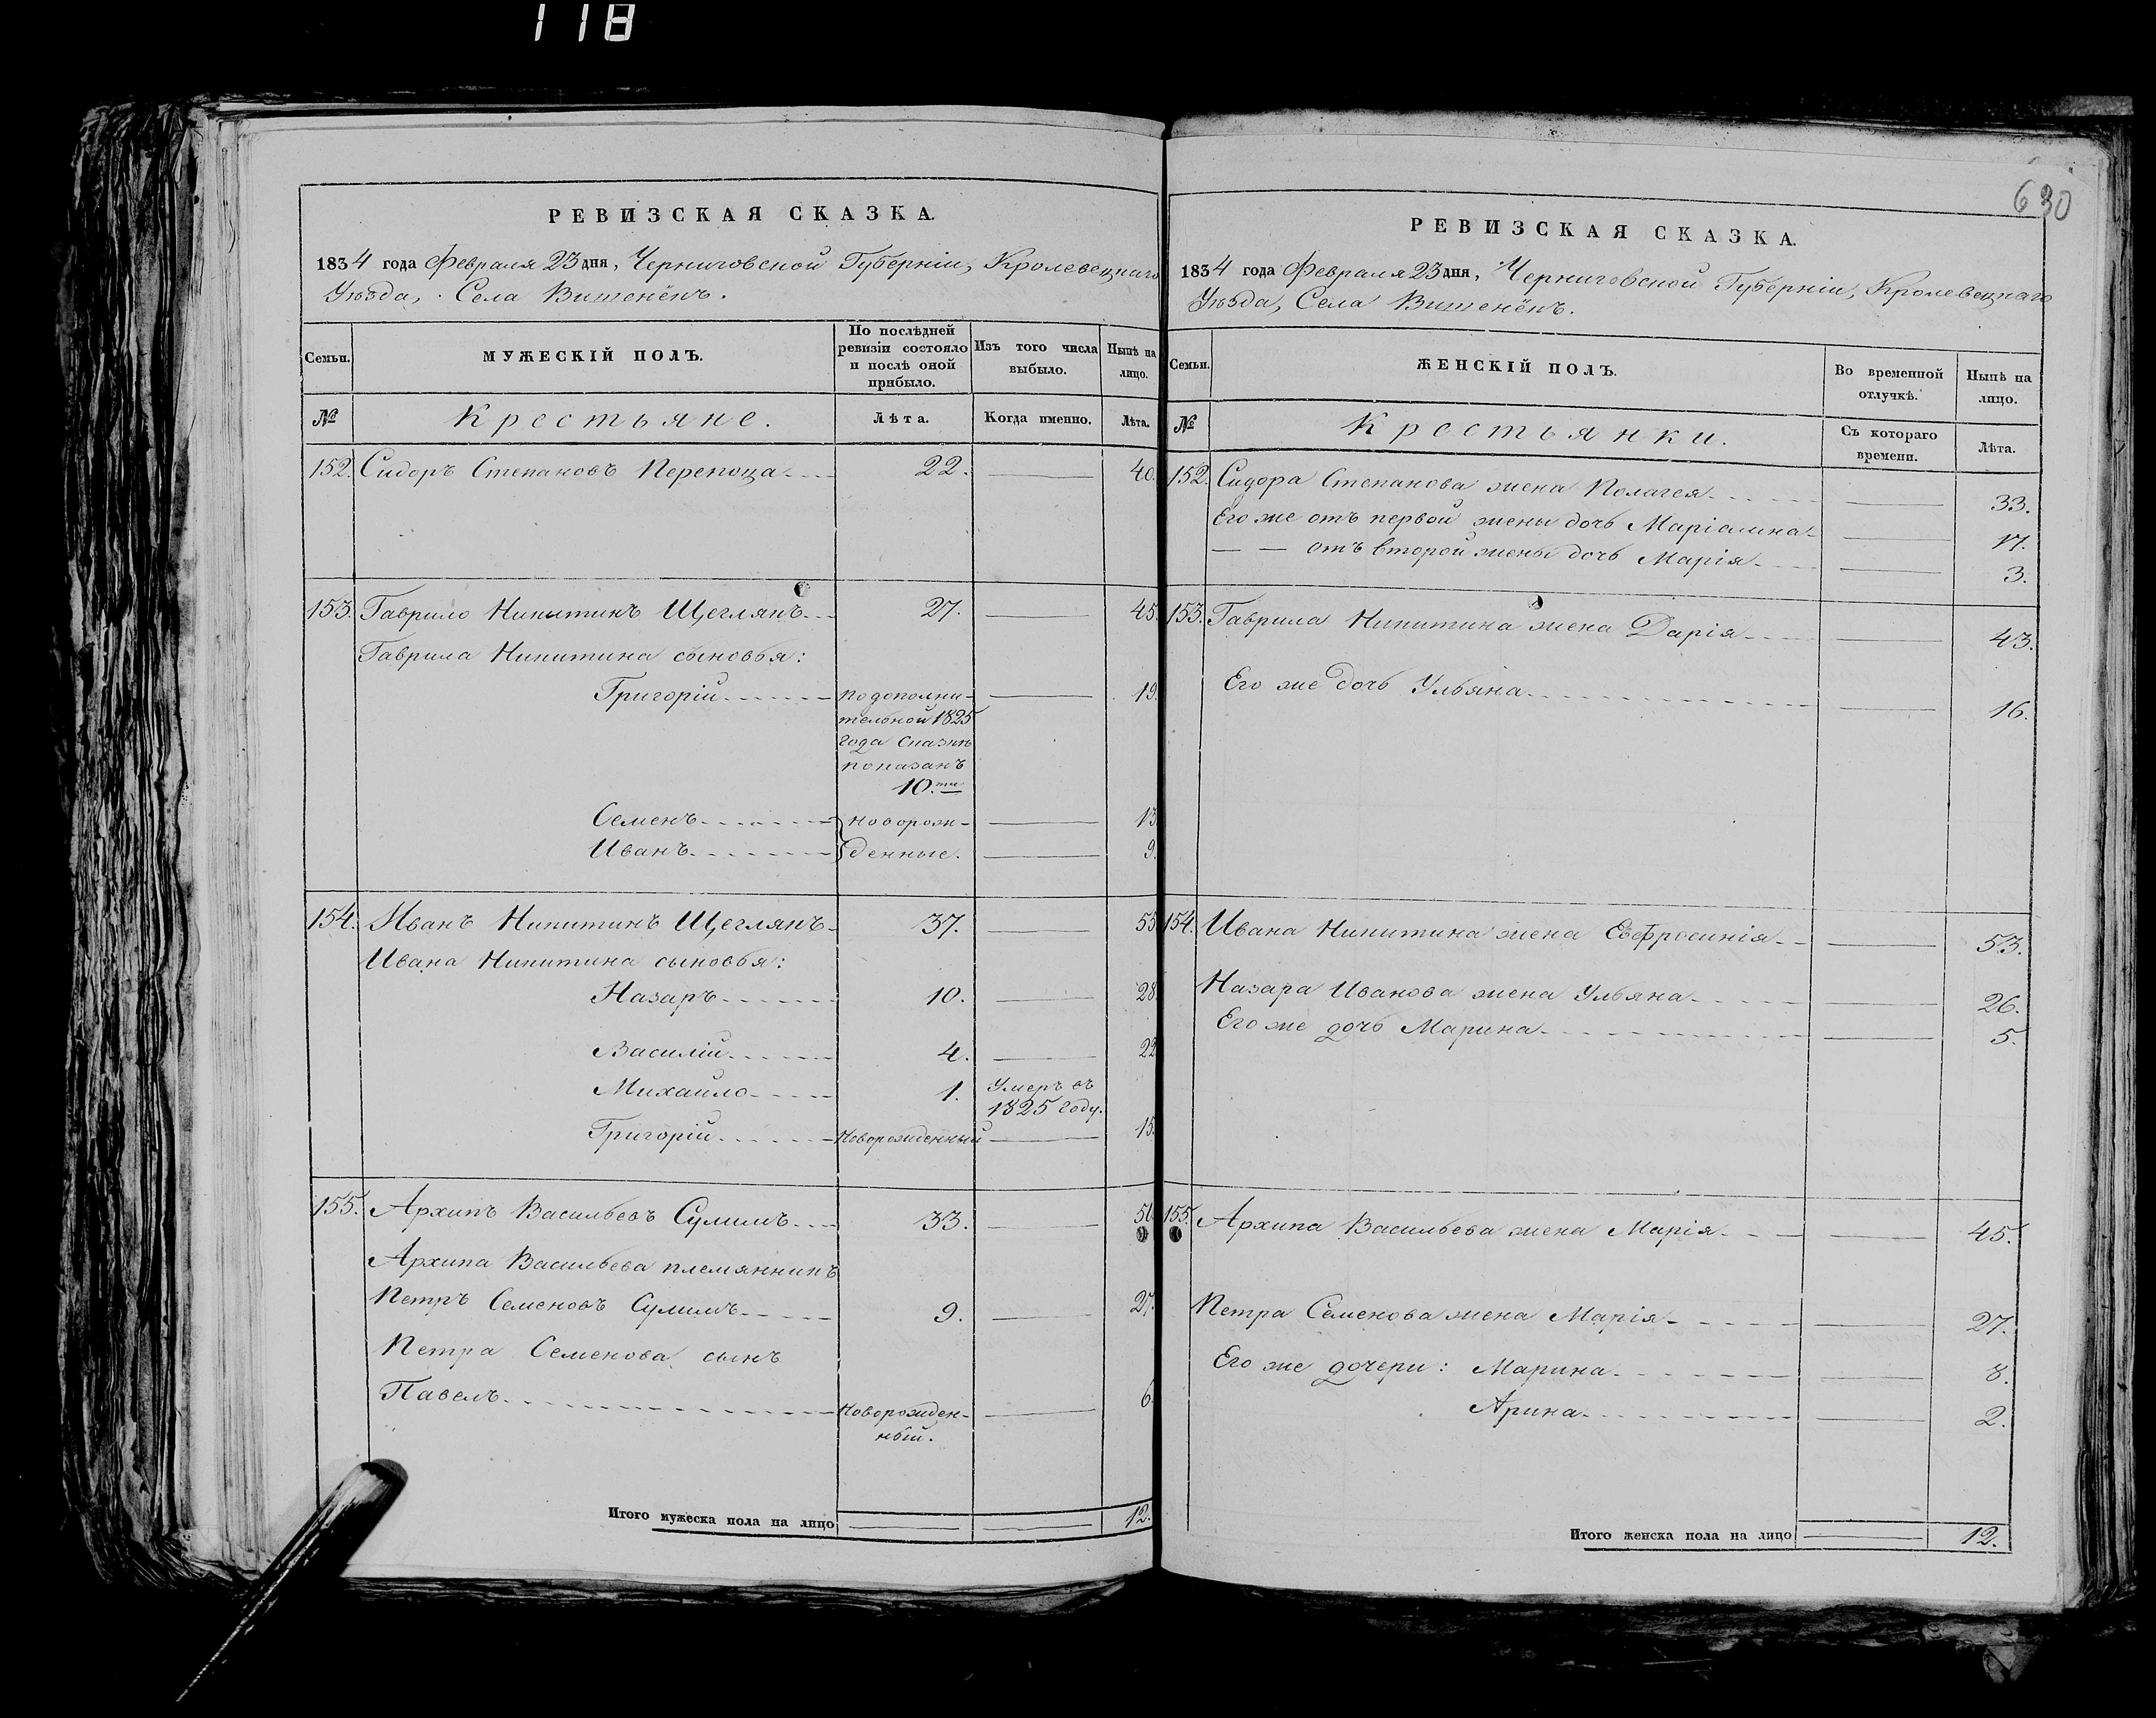 118
630
РЕВИЗСКАЯ СКАЗКА.
1834 года Февраля 23 дня, Черниговской Губерніи, Кролевецкаго
Уѣзда, Села Вишенёкъ.
Семьи.
МУЖЕСКІЙ ПОЛЪ.
По послѣдней
ревизіи состояло
и послѣ оной
прибыло.
Изъ того числа
выбыло.
Нынѣ на
лицо.
№
Крестьяне.
Лѣта.
Когда именно.
Лѣта.
152. Сидоръ Степановъ 22. 40.
153. Гаврило Никитинъ Щеглякъ 27. 45.
Гаврила Никитина сыновья:
Григорій подополни- 19.
тельной 1825
года сказкѣ
показанъ
10.ти
Семенъ новорож- 13.
Иванъ денные. 9.
154. Иванъ Никитинъ Щеглякъ 37. 55
Ивана Никитина сыновья:
Назаръ 10. 28.
Василій 4. 22
Михайло 1. Умеръ въ
1825 году.
Григорій Новорожденный 15.
155. Архипъ Васильевъ Сулимъ 33.
Архипа Васильева племянникъ
Петръ Семеновъ Сулимъ 9. 27.
Петра Семенова сынъ
Павелъ Новорожден- 6.
ный.
Итого мужеска пола на лицо 12.
РЕВИЗСКАЯ СКАЗКА.
1834 года Февраля 23 дня, Черниговской Губерніи, Кролевецкаго
Уѣзда, Села Вишенёкъ.
Семьи.
ЖЕНСКІЙ ПОЛЪ.
Во временной
отлучкѣ.
Нынѣ на
лицо.
№
Крестьянки.
Съ котораго
времени.
Лѣта.
152. Сидора Степанова жена Полагея 33.
Его же отъ первой жены дочь 17.
— — отъ второй жены дочь Марія 3.
153. Гаврила Никитина жена Дарія 43.
Его же дочь Ульяна 16.
154. Ивана Никитина жена Евфросинія 53.
Назара Иванова жена Ульяна 26.
Его же дочь Марина 5.
155. Архипа Васильева жена Марія 45.
Петра Семенова жена Марія 27.
Его же дочери: Марина 8.
Арина 2.
Итого женска пола на лицо 12.